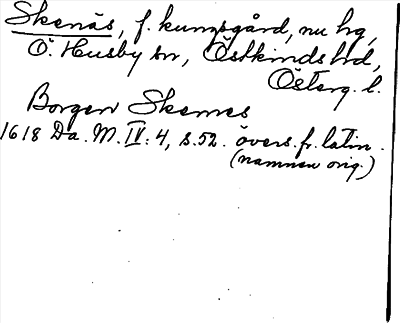 Skenäs, f. kungsgård, nu hg,
Ö. Husby sn, Östkinds hd,
Österg. l.
Borgen Skemes
1618 Da. M. IV: 4, s. 52. övers. fr. latin.
(namnen orig.)